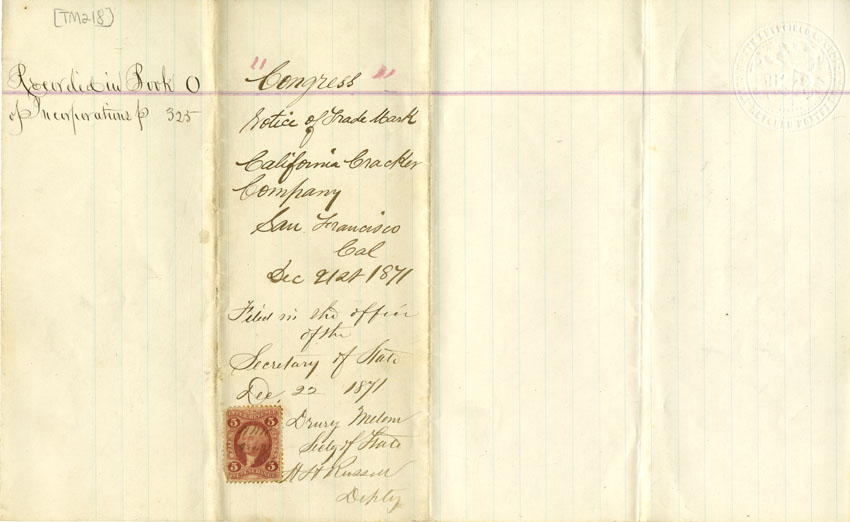 [TM218]
Recorded in Book O
of Incorporations p 325
"Congress"
Notice of Trade Mark
California Cracker
Company
San Francisco
Cal
Dec 21st 1871
Filed in the office
of the
Secretary of State
Dec. 22 1871
Drury Melone
Secty of State
H H Russell
Depty
5 5
5 5